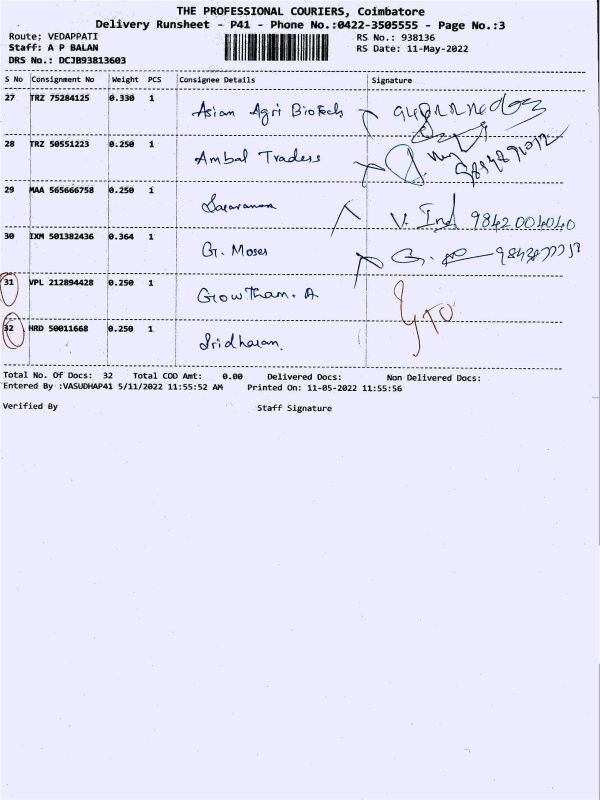 THE PROFESSIONAL COURIERS, Coimbatore
Delivery Runsheet - P41 - Phone No.:0422-3505555 - Page No.:3
Route: VEDAPPATI RS No.: 938136
Staff: A P BALAN RS Date: 11-May-2022
DRS No.: DCJB93813603
S No Consignment No Weight PCS Consignee Details Signature
27 TRZ 75284125 0.330 1 Asian Agri BioTech
28 TRZ 50551223 0.250 1 Ambal Traders
29 MAA 565666758 0.250 1 Saravanan V. Ind 9842004040
30 IXM 501382436 0.364 1 G. Moses
31 VPL 212894428 0.250 1 Gowtham. A
32 HRD 50011668 0.250 1 Sridharan.
Total No. Of Docs: 32 Total COD Amt: 0.00 Delivered Docs: Non Delivered Docs:
Entered By :VASUDHAP41 5/11/2022 11:55:52 AM Printed On: 11-05-2022 11:55:56
Verified By Staff Signature